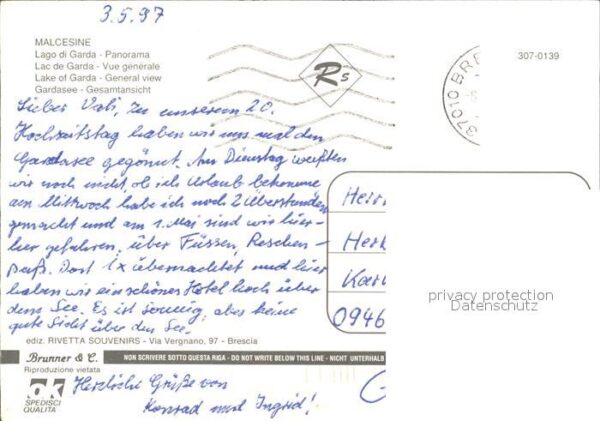 3.5.97
MALCESINE
Lago di Garda - Panorama
Lac de Garda - Vue générale
Lake of Garda - General view
Gardasee - Gesamtansicht
307-0139
Rs
37010 BRE
Lieber Vati, Zu unserem 20.
Hochzeitstag haben wir uns mal den
Gardasee gegönnt. Am Dienstag wußten
wir noch nicht ob ich Urlaub bekomme
am Mittwoch habe ich noch 2 Überstunden
gemacht und am 1. Mai sind wir hier-
her gefahren. über Füssen, Reschen-
paß. Dort 1x übernachtet und hier
haben wir ein schönes Hotel hoch über
dem See. Es ist sonnig, aber keine
gute Sicht über den See.
Herrn
Her
Kar
0946
privacy protection
Datenschutz
ediz. RIVETTA SOUVENIRS - Via Vergnano, 97 - Brescia
Brunner & C.
NON SCRIVERE SOTTO QUESTA RIGA - DO NOT WRITE BELOW THIS LINE - NICHT UNTERHALB
Riproduzione vietata
ok
SPEDISCI
QUALITA
Herzliche Grüße von
Konrad und Ingrid!